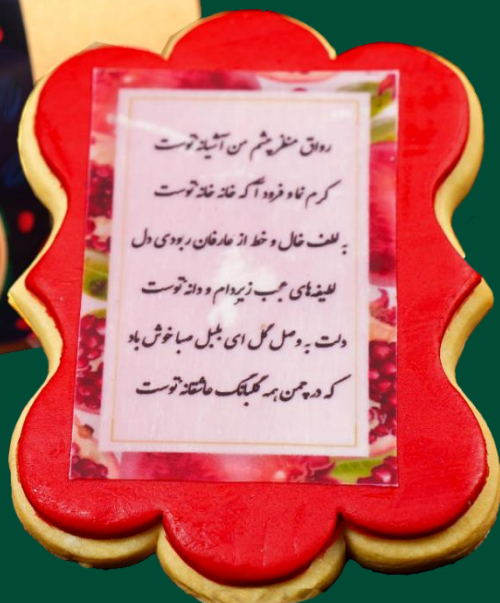 رواق منظر چشم من آشیانه توست
کرم نما و فرود آ که خانه خانه توست
به لطف خال و خط از عارفان ربودی دل
لطیفه‌های عجب زیر دام و دانه توست
دلت به وصل گل ای بلبل صبا خوش باد
که در چمن همه گلبانگ عاشقانه توست